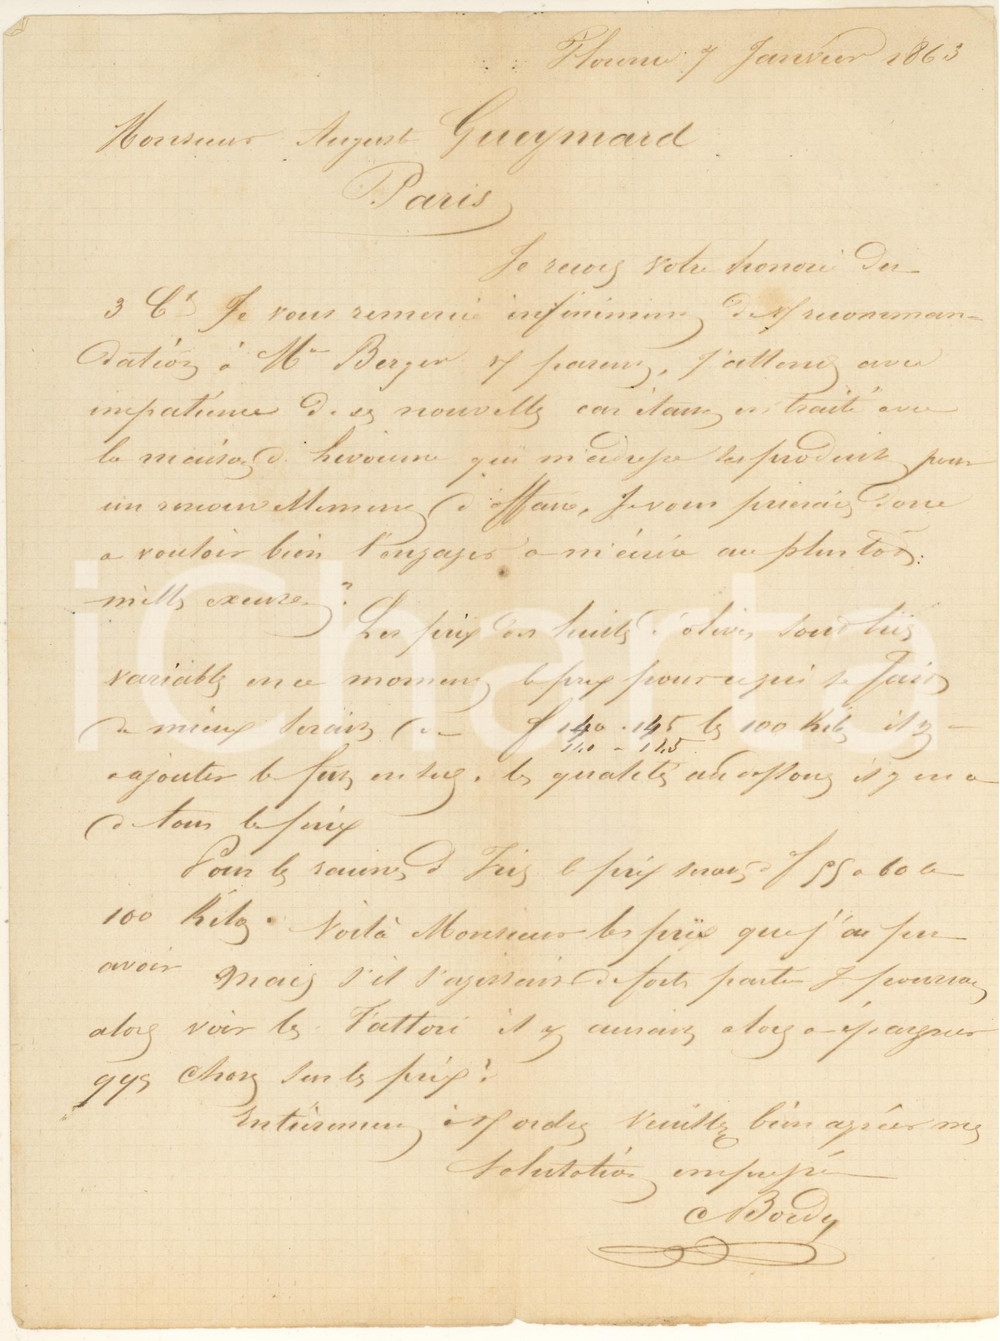 Florence 7 Janvier 1863
Monsieur August Gueymard
Paris
Je reçois votre honoré du
3 Ct Je vous remercie infiniment de recomman-
dation à Mr Berger, j'attend avec
impatience de ses nouvelles car étant en traité avec
la maison de Livourne qui m'adresse les produits pour
un renouvellement d'affaire, Je vous prierais donc
a vouloir bien l'engager a m'écrire au plus tôt.
mille excuses
Les prix des huiles d'olives sont très
variables en ce moment le prix pour ce qui se fait
de mieux serait de f 140 - 145 les 100 Kilos il y
140 - 145
a ajouter le fût en sus. les qualités au dessous il y en a
de tous les prix
Pour les racines d'Iris le prix serait d f 55 a 60 le
100 Kilos. Voilà Monsieur les prix que j'ai pu
avoir Mais s'il s'agissait de forte partie Je pourrais
alors voir les Fattori il y aurait alors a épargner
qqs chose sur les prix.
Entièrement à Vos ordres Veuillez bien agréer mes
Salutations empressé
C Bordy
iCharta